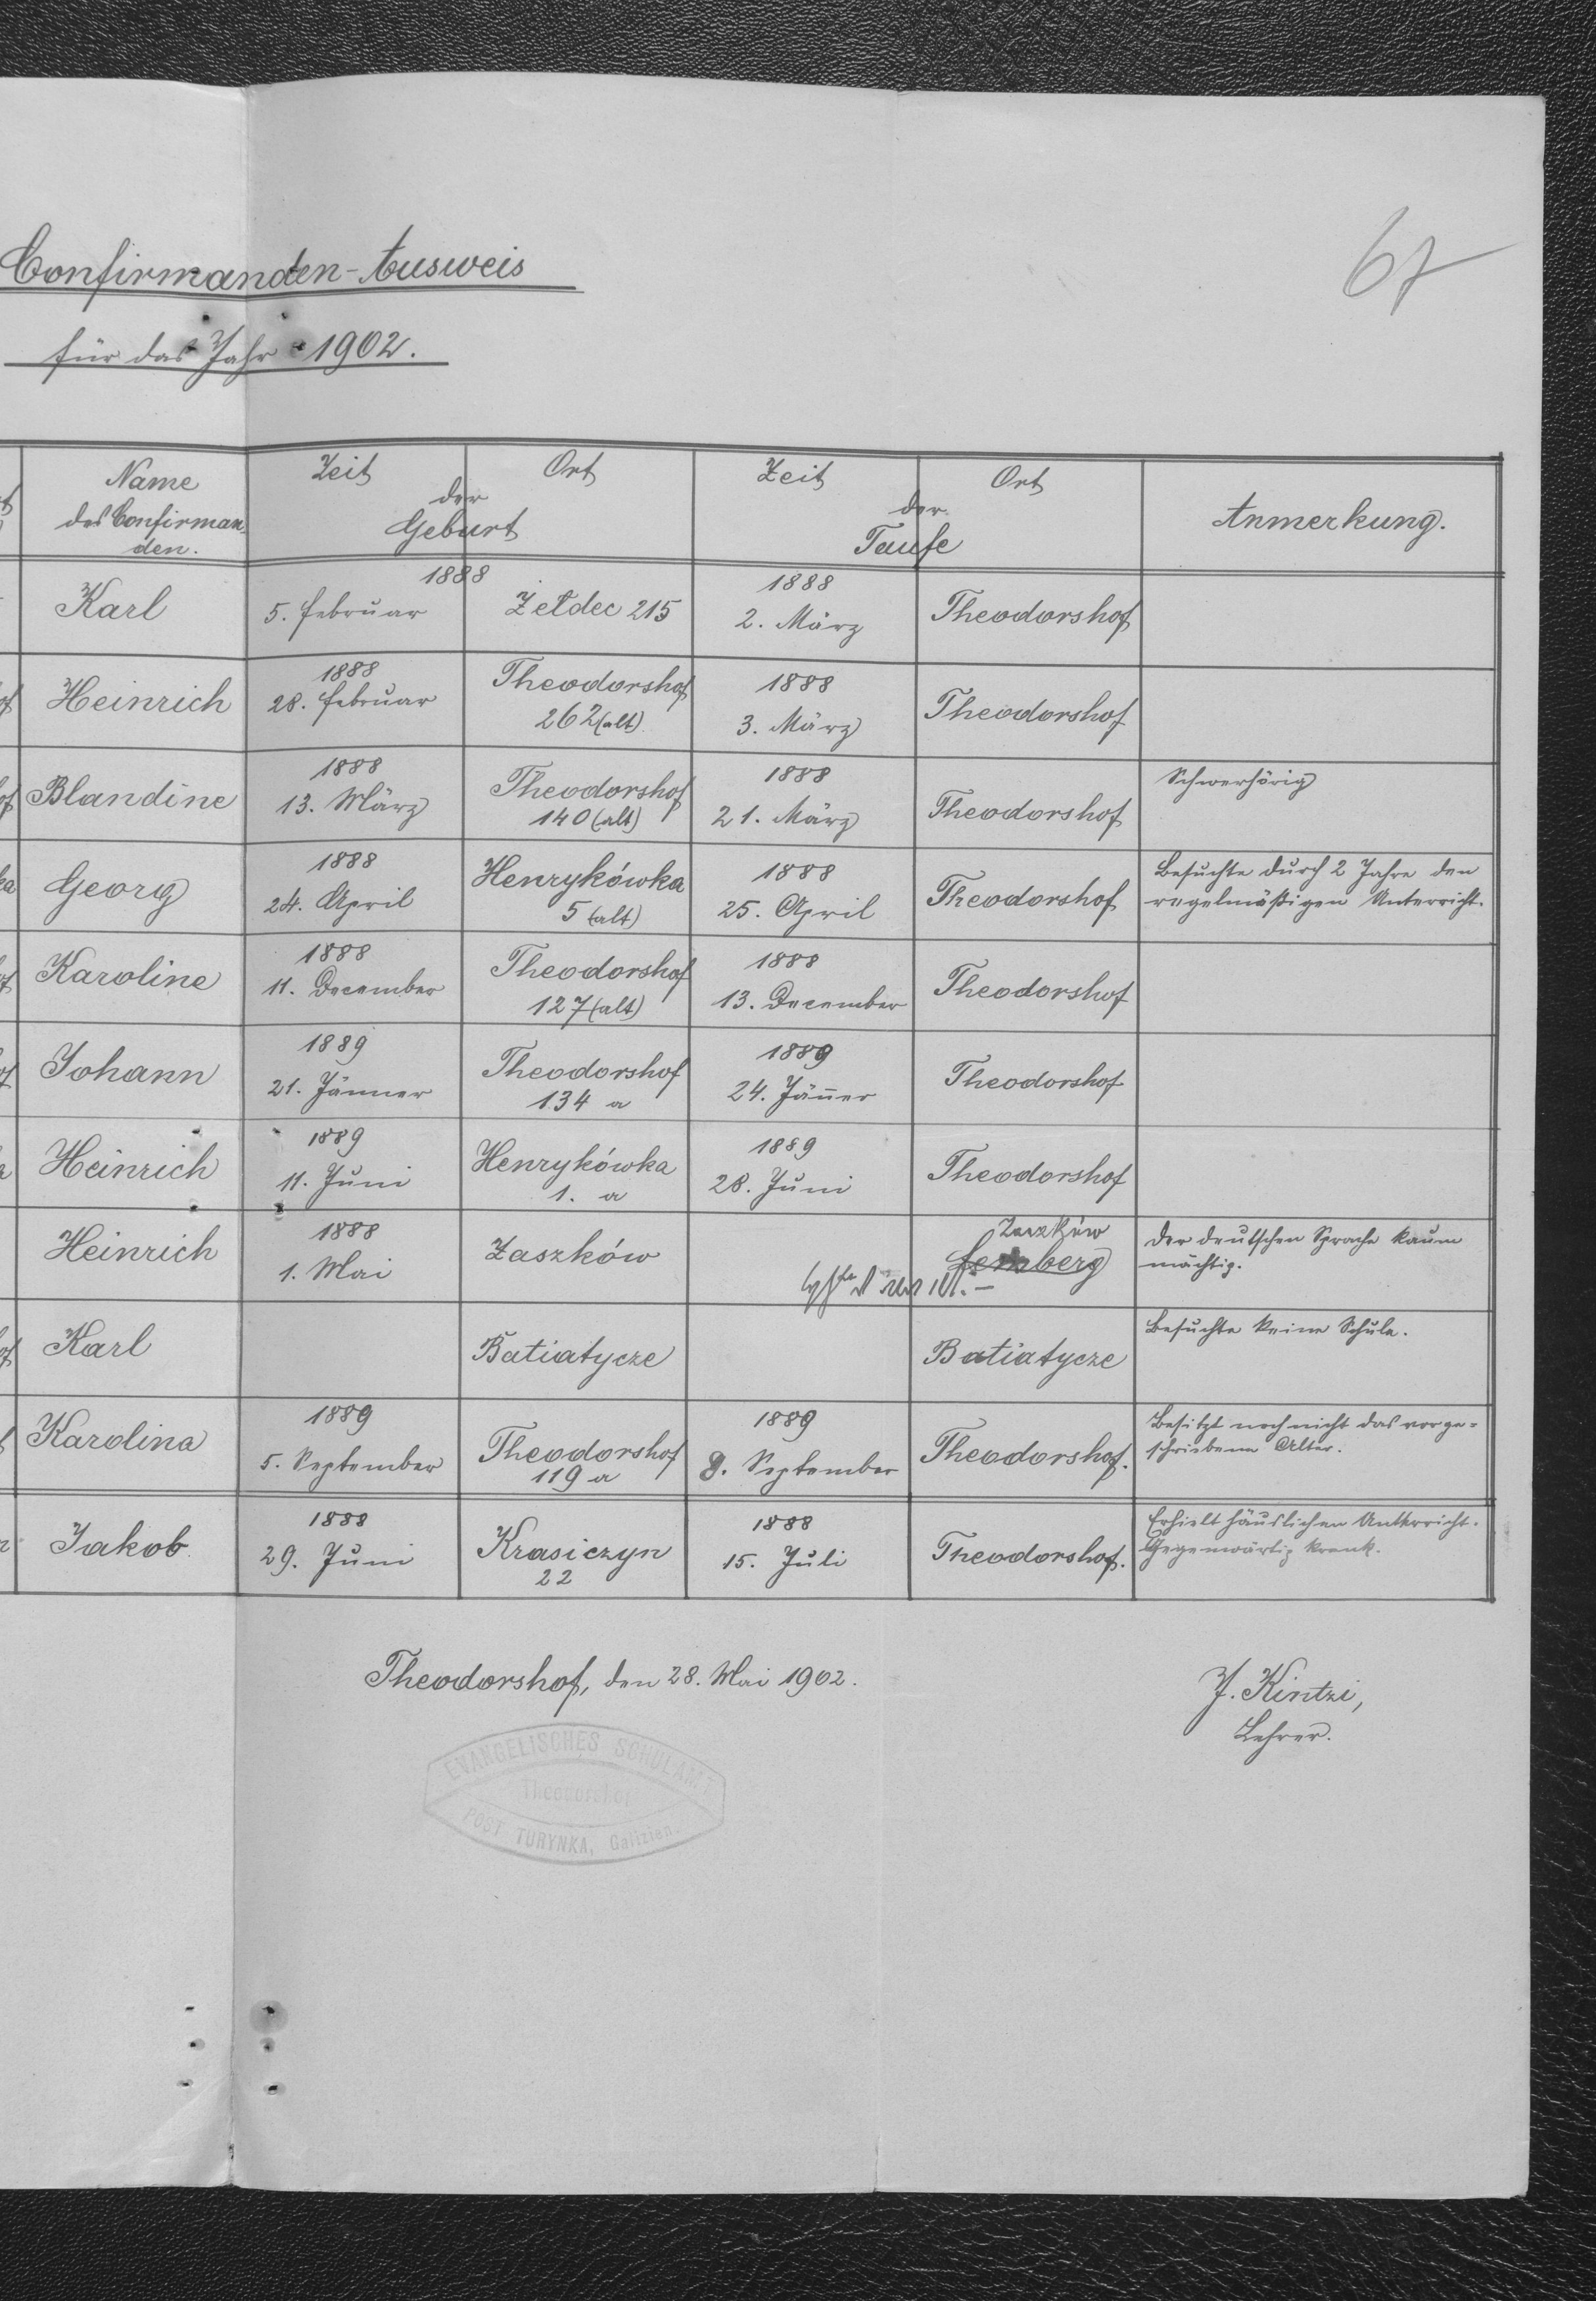 67
Confirmanden-Ausweis
für das Jahr 1902.
Name des Confirmanden. Zeit Ort der Geburt Zeit Ort der Taufe Anmerkung.
Karl 1888 5. Februar Żełdec 215 1888 2. März Theodorshof
Heinrich 1888 28. Februar Theodorshof 262 (alt) 1888 3. März Theodorshof
Blandine 1888 13. März Theodorshof 140 (alt) 1888 21. März Theodorshof Schwerhörig
Georg 1888 24. April Henrykówka 5 (alt) 1888 25. April Theodorshof Besuchte durch 2 Jahre den regelmäßigen Unterricht.
Karoline 1888 11. December Theodorshof 127 (alt) 1888 13. December Theodorshof
Johann 1889 21. Jänner Theodorshof 134 a 1889 24. Jänner Theodorshof
Heinrich 1889 11. Juni Henrykówka 1. a 1889 28. Juni Theodorshof
Heinrich 1888 1. Mai Zaszków Zaszków Lemberg Der deutschen Sprache kaum mächtig.
Karl Batiatycze Batiatycze Besuchte keine Schule.
Karolina 1889 5. September Theodorshof 119 a 1889 8. September Theodorshof. Besitzt noch nicht das vorge=
schriebene Alter.
Jakob 1888 29. Juni Krasiczyn 22 1888 15. Juli Theodorshof. Erhielt häuslichen Unterricht.
Gegenwärtig krank.
Theodorshof, den 28. Mai 1902.
J. Kintzi,
Lehrer.
EVANGELISCHES SCHULAMT
Theodorshof
POST TURYNKA, Galizien.